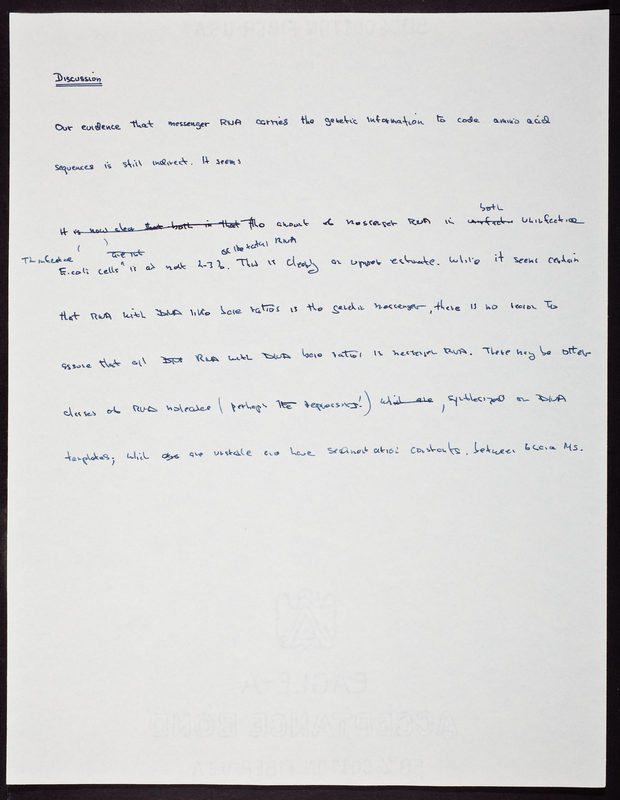 Discussion
Our evidence that messenger RNA carries the genetic information to code amino acid
sequences is still indirect. It seems
both
It is now clear that both in that The amount of messenger RNA in uninfective
T2 infective
of the total RNA
E. coli cells is at most 2-3%. This is clearly an upper estimate. While it seems certain
that RNA with DNA like base ratios is the genetic messenger, there is no reason to
assume that all RNA with DNA base ratios is messenger RNA. There may be other
classes of RNA molecules (perhaps the repressors!) which are, synthesized on DNA
templates, which are unstable and have sedimentation constants between 6 and